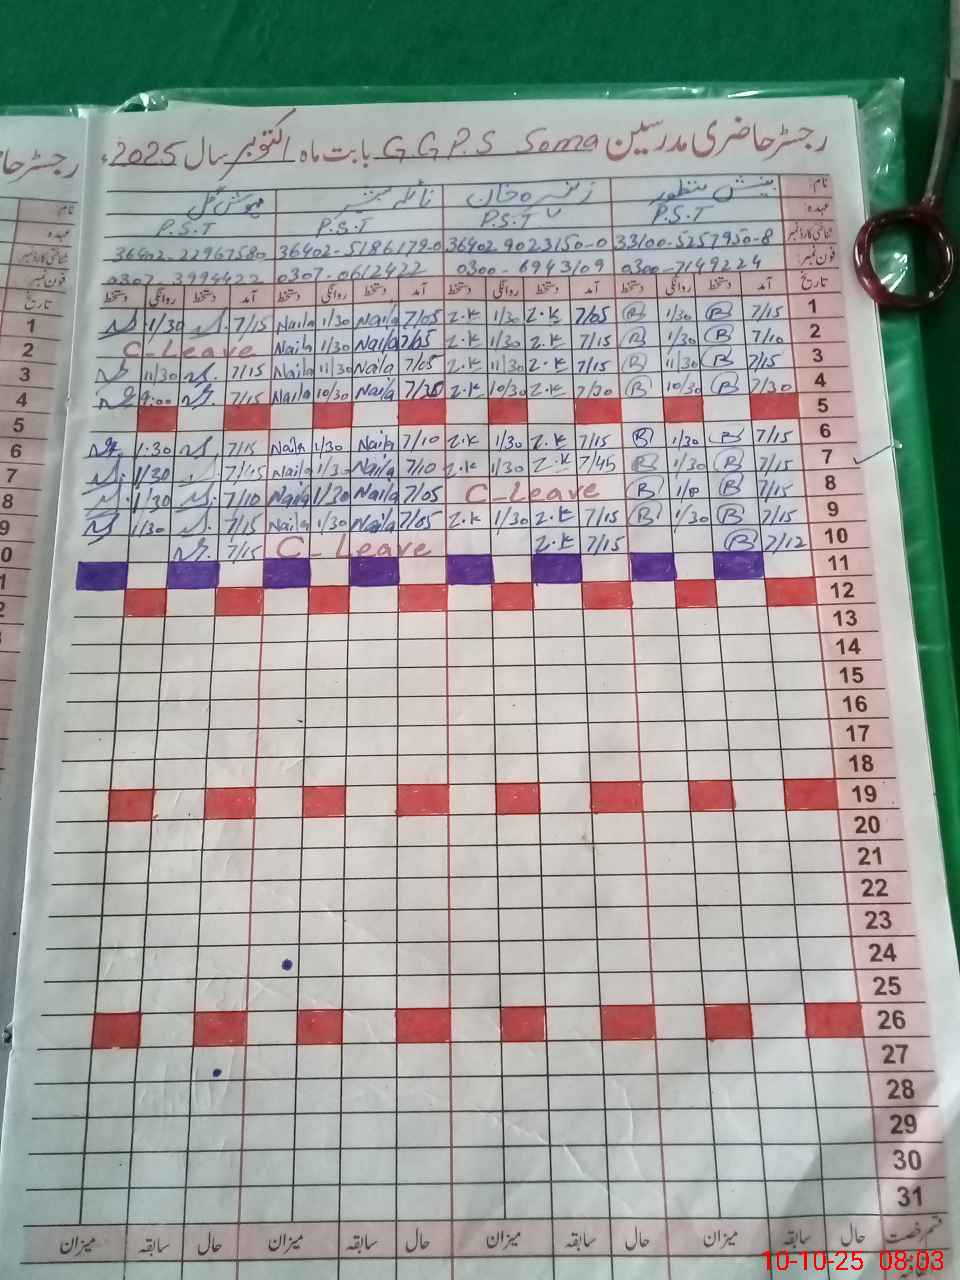 رجسٹر حاضری مدرسین G.G.P.S Soma بابت ماہ اکتوبر سال 2025ء
نام: بینش منظور زنیرہ خان نائلہ مہوش گل
عہدہ: P.S.T P.S.T P.S.T P.S.T
شناختی کارڈ نمبر 33100-5257950-8 36402-9023150-0 36402-5186179-0 36402-2296758-0
فون نمبر: 0300-7149224 0300-6943109 0307-0612422 0307-3994422
تاریخ آمد دستخط روانگی دستخط آمد دستخط روانگی دستخط آمد دستخط روانگی دستخط آمد دستخط روانگی دستخط
1 7/15 B 1/30 B 7/05 Z.K 1/30 Z.K 7/05 Naila 1/30 Naila 7/15 1/30
2 7/10 B 1/30 B 7/15 Z.K 1/30 Z.K 7/05 Naila 1/30 Naila C-Leave
3 7/15 B 11/30 B 7/15 Z.K 11/30 Z.K 7/05 Naila 11/30 Naila 7/15 11/30
4 7/30 B 10/30 B 7/20 Z.K 10/30 Z.K Naila 10/30 Naila 7/15 9:00
5
6 7/15 B 1/30 B 7/15 Z.K 1/30 Z.K 7/10 Naila 1/30 Naila 7/15 1:30
7 7/15 B 1/30 B 7/45 Z.K 1/30 Z.K 7/10 Naila 1/30 Naila 7/15 1/30
8 7/15 B B C-Leave 7/05 Naila 1/30 Naila 7/10 1/30
9 7/15 B 1/30 B 7/15 Z.K 1/30 Z.K 7/05 Naila 1/30 Naila 7/15 1/30
10 7/12 B 7/15 Z.K C-Leave 7/15
11
12
13
14
15
16
17
18
19
20
21
22
23
24
25
26
27
28
29
30
31
قسم رخصت حال سابقہ میزان حال سابقہ میزان حال سابقہ میزان حال سابقہ میزان
10-10-25 08:03